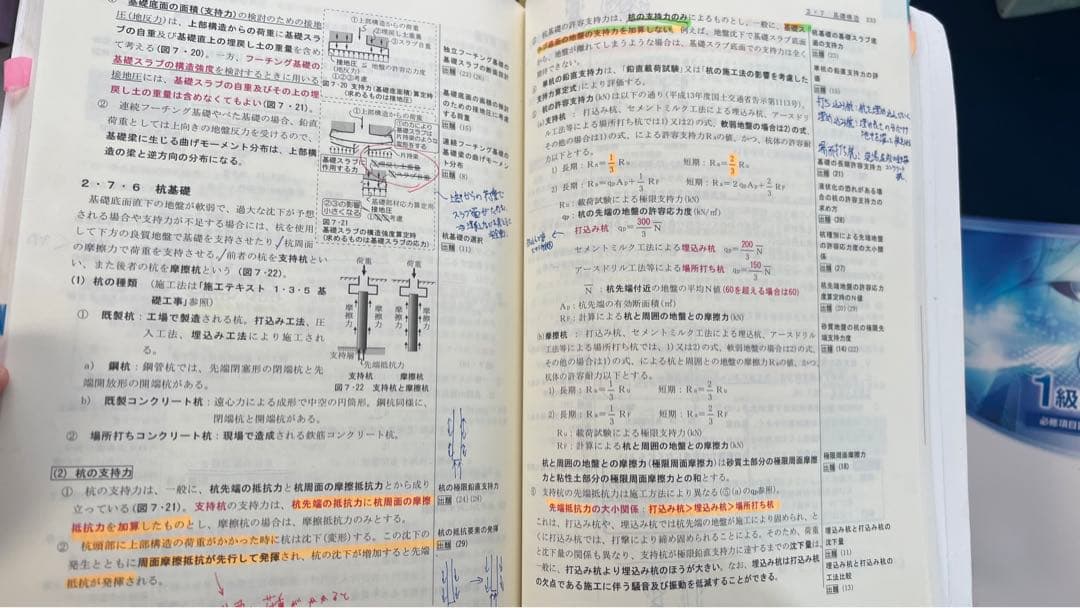 基礎底面の面積(支持力)の検討のための接地
圧(地反力)は、上部構造からの荷重に基礎スラ
ブの自重及び基礎直上の埋戻し土の重量を含め
て考える(図7・20)。一方、フーチング基礎の
基礎スラブの構造強度を検討するときに用いる
接地圧には、基礎スラブの自重及びその上の埋
戻し土の重量は含めなくてもよい(図7・21)。
② 連続フーチング基礎やべた基礎の場合、鉛直
荷重としては上向きの地盤反力を受けるので、
基礎梁に生じる曲げモーメント分布は、上部構
造の梁と逆方向の分布になる。
①上部構造からの荷重
②埋戻し土重量
③スラブ自重
接地圧 ≦ 地盤の許容応力度
①②③考慮
図7・20 支持力(基礎底面積)算定時
(求めるものは接地圧)
①上部構造からの荷重
片持梁
基礎スラブに
作用する力
②③の影響
小さくなる
基礎部材応力算定用
接地圧
図7・21
基礎スラブの構造強度算定時
(求めるものは基礎スラブの応力)
独立フーチング基礎の
基礎スラブの断面設計
出題(23)(26)
基礎底面の面積の検討
のための接地圧に考慮
する荷重
出題(15)
連続フーチング基礎の
基礎梁の曲げモーメン
ト分布
出題(8)
杭基礎の選択
出題(11)
2・7・6 杭基礎
基礎底面直下の地盤が軟弱で、過大な沈下が予想
される場合や支持力が不足する場合には、杭を使用
して下方の良質地盤で基礎を支持させたり、杭周面
の摩擦力で荷重を支持させる。前者の杭を支持杭とい
い、また後者の杭を摩擦杭という(図7・22)。
(1) 杭の種類 (施工法は「施工テキスト 1・3・5 基
礎工事」参照)
① 既製杭:工場で製造される杭。打込み工法、圧
入工法、埋込み工法により施工され
る。
a) 鋼杭:鋼管杭では、先端閉塞形の閉端杭と先
端開放形の開端杭がある。
b) 既製コンクリート杭:遠心力による成形で中空の円筒形。鋼杭同様に、
閉端杭と開端杭がある。
② 場所打ちコンクリート杭:現場で造成される鉄筋コンクリート杭。
荷重 荷重
摩擦力 摩擦力
支持層 先端抵抗力
支持杭 摩擦杭
図7・22 支持杭と摩擦杭
(2) 杭の支持力
① 杭の支持力は、一般に、杭先端の抵抗力と杭周面の摩擦抵抗力とから成り
立っている(図7・21)。支持杭の支持力は、杭先端の抵抗力に杭周面の摩擦
抵抗力を加算したものとし、摩擦杭の場合は、摩擦抵抗力のみとする。
② 杭頭部に上部構造の荷重がかかった時に杭は沈下(変形)する。この沈下の
発生とともに周面摩擦抵抗が先行して発揮され、杭の沈下が増加すると先端
抵抗が発揮される。
杭の極限鉛直支持力
出題(24)(28)
杭の抵抗要素の発揮
出題(29)
2・7 基礎構造 233
杭基礎の許容支持力は、杭の支持力のみによるものとし、一般に、基礎ス
ラブ底面の地盤の支持力を加算しない。例えば、地盤沈下で基礎スラブ底面
が、地盤が離れてしまうような場合は、基礎スラブ底面での支持力は全く
期待できない。
単杭の鉛直支持力は、「鉛直載荷試験」又は「杭の施工法の影響を考慮した
支持力算定式」により評価する。
杭の許容支持力(kN)は以下の通り(平成13年度国土交通省告示第1113号)。
(a) 支持杭: 打込み杭、セメントミルク工法による埋込杭、アースドリル
工法等による場所打ち杭では1)又は2)の式、軟弱地盤の場合は2)の式、
その他の場合は1)の式、による許容支持力Raの値、かつ、杭体の許容耐
力以下とする。
1) 長期:Ra=1/3 Ru 短期:Ra=2/3 Ru
2) 長期:Ra=qpAp+1/3 RF 短期:Ra=2qpAp+2/3 RF
Ru:載荷試験による極限支持力(kN)
qp:杭の先端の地盤の許容応力度(kN/㎡)
打込み杭 qp=300/3 N̄
セメントミルク工法による埋込み杭 qp=200/3 N̄
アースドリル工法等による場所打ち杭 qp=150/3 N̄
N̄:杭先端付近の地盤の平均N値(60を超える場合は60)
Ap:杭先端の有効断面積(㎡)
RF:計算による杭と周囲の地盤との摩擦力(kN)
(b) 摩擦杭: 打込み杭、セメントミルク工法による埋込杭、アースドリル
工法等による場所打ち杭では、1)又は2)の式、軟弱地盤の場合は2)の式、
その他の場合は1)の式、による杭と周囲との地盤の摩擦力Raの値、かつ、
杭体の許容耐力以下とする。
1) 長期:Ra=1/3 Ru 短期:Ra=2/3 Ru
2) 長期:Ra=1/3 RF 短期:Ra=2/3 RF
Ru:載荷試験による極限支持力(kN)
RF:計算による杭と周囲の地盤との摩擦力(kN)
杭と周囲の地盤との摩擦力(極限周面摩擦力)は砂質土部分の極限周面摩擦力
と粘性土部分の極限周面摩擦力との和とする。
支持杭の先端抵抗力は施工方法により異なる(⑤(a)のqp参照)。
先端抵抗力の大小関係:打込み杭>埋込み杭>場所打ち杭
これは、打込み杭や、埋込み杭では杭先端の地盤が施工により固められ、と
くに打込み杭では、打撃により締め固められることによる。そのため、荷重
と沈下量の関係も異なり、支持杭が極限鉛直支持力に達するまでの沈下量は、
一般に、打込み杭より埋込み杭のほうが大きい。なお、埋込み杭は打込み杭
の欠点である施工に伴う騒音及び振動を低減することができる。
杭基礎の基礎スラブ底
面の支持力
出題(23)
単杭の鉛直支持力の評
価
出題(15)
基礎の長期許容支持力
出題(21)
液状化の恐れがある場
合の杭の許容支持力の
求め方
出題(28)
杭種別による先端地盤
の許容応力度の大小関
係
出題(27)
杭先端地盤の許容応力
度算定時のN値
出題(20)(29)
砂質地盤の杭の極限先
端支持力度
出題(14)(22)
極限周面摩擦力
出題(18)
埋込み杭と打込み杭の
沈下量
出題(11)
埋込み杭と打込み杭の
工法比較
出題(13)
1級
必修項目